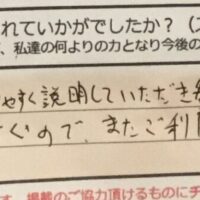 れていかがでしたか？（ス
、私達の何よりの力となり今後の
やすく説明していただき
ぐので、またご利
す。掲載のご協力頂けるものにチ